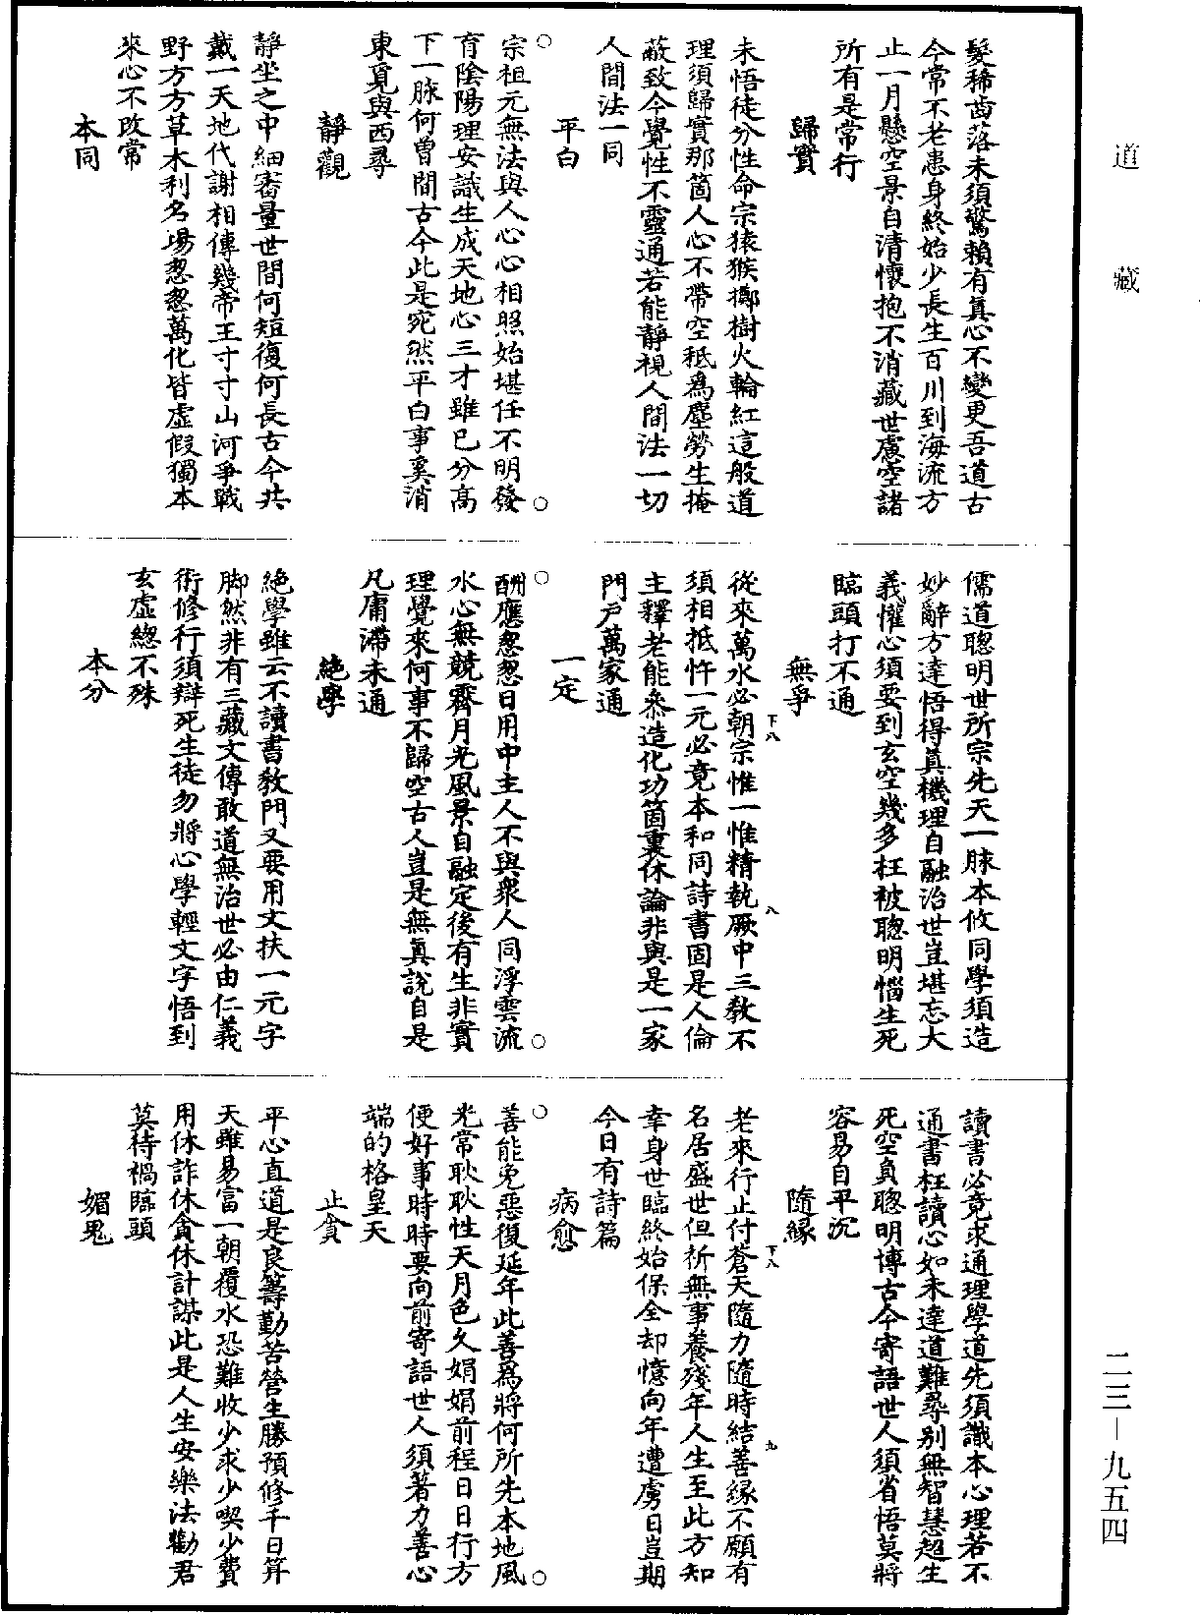 道藏
髮稀齒落未須驚賴有真心不變更吾道古
今常不老患身終始少長生百川到海流方
止一月懸空景自清懷抱不消藏世慮空諸
所有是常行
歸實
未悟徒分性命宗猿猴擲樹火輪紅這般道
理須歸實那箇人心不帶空秪為塵勞生掩
蔽致令覺性不靈通若能靜視人間法一切
人間法一同
平白
宗祖元無法與人心心相照始堪任不明發
育陰陽理安識生成天地心三才雖已分高
下一脉何曾間古今此是宛然平白事奚消
東覓與西尋
靜觀
靜坐之中細審量世間何短復何長古今共
戴一天地代謝相傳幾帝王寸寸山河爭戰
野方方草木利名場怱怱萬化皆虛假獨本
來心不改常
本同
儒道聰明世所宗先天一脉本攸同學須造
妙辭方達悟得真機理自融治世豈堪忘大
義懽心須要到玄空幾多枉被聰明惱生死
臨頭打不通
無爭
從來萬水必朝宗惟一惟精執厥中三教不
須相抵忤一元必竟本和同詩書固是人倫
主釋老能叅造化功箇裏休論非與是一家
門戶萬家通
一定
酬應怱怱日用中主人不與衆人同浮雲流
水心無競霽月光風景自融定後有生非實
理覺來何事不歸空古人豈是無真說自是
凡庸滯未通
絕學
絕學雖云不讀書教門又要用文扶一元字
脚然非有三藏文傳敢道無治世必由仁義
術修行須辯死生徒勿將心學輕文字悟到
玄虛緫不殊
本分
讀書必竟求通理學道先須識本心理若不
通書枉讀心如未達道難尋別無智慧超生
死空負聰明博古今寄語世人須省悟莫將
容易自平沉
隨緣
老來行止付蒼天隨力隨時結善緣不願有
名居盛世但祈無事養殘年人生至此方知
幸身世臨終始保全却憶向年遭虜日豈期
今日有詩篇
病愈
善能免惡復延年此善為將何所先本地風
光常耿耿性天月色久娟娟前程日日行方
便好事時時要向前寄語世人須著力善心
端的格皇天
止貪
平心直道是良籌勤苦營生勝預修千日笄
天雖易富一朝覆水恐難收少求少喫少費
用休詐休貪休計謀此是人生安樂法勸君
莫待禍臨頭
媚鬼
下八
八
下八
九
二三－九五四